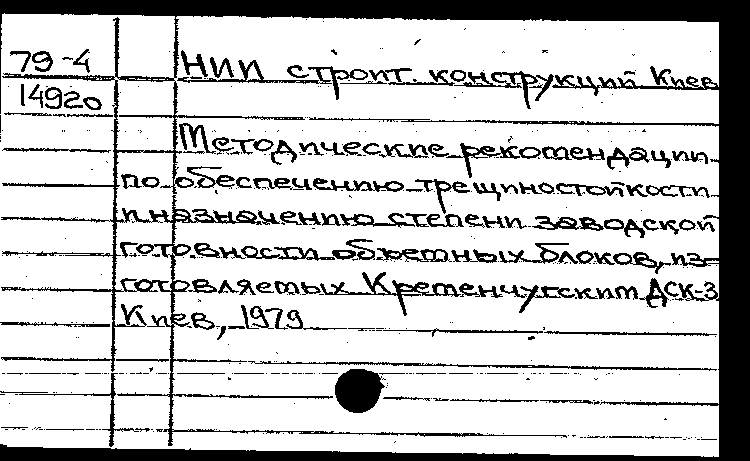 79-4
НИИ строит. конструкций Киев
14920
Методические рекомендации
по обеспечению трещиностойкости
и назначению степени заводской
готовности объемных блоков, из-
готовляемых Кременчугским ДСК-3
Киев, 1979